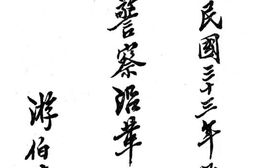 民國三十三年
警察沿革
游伯